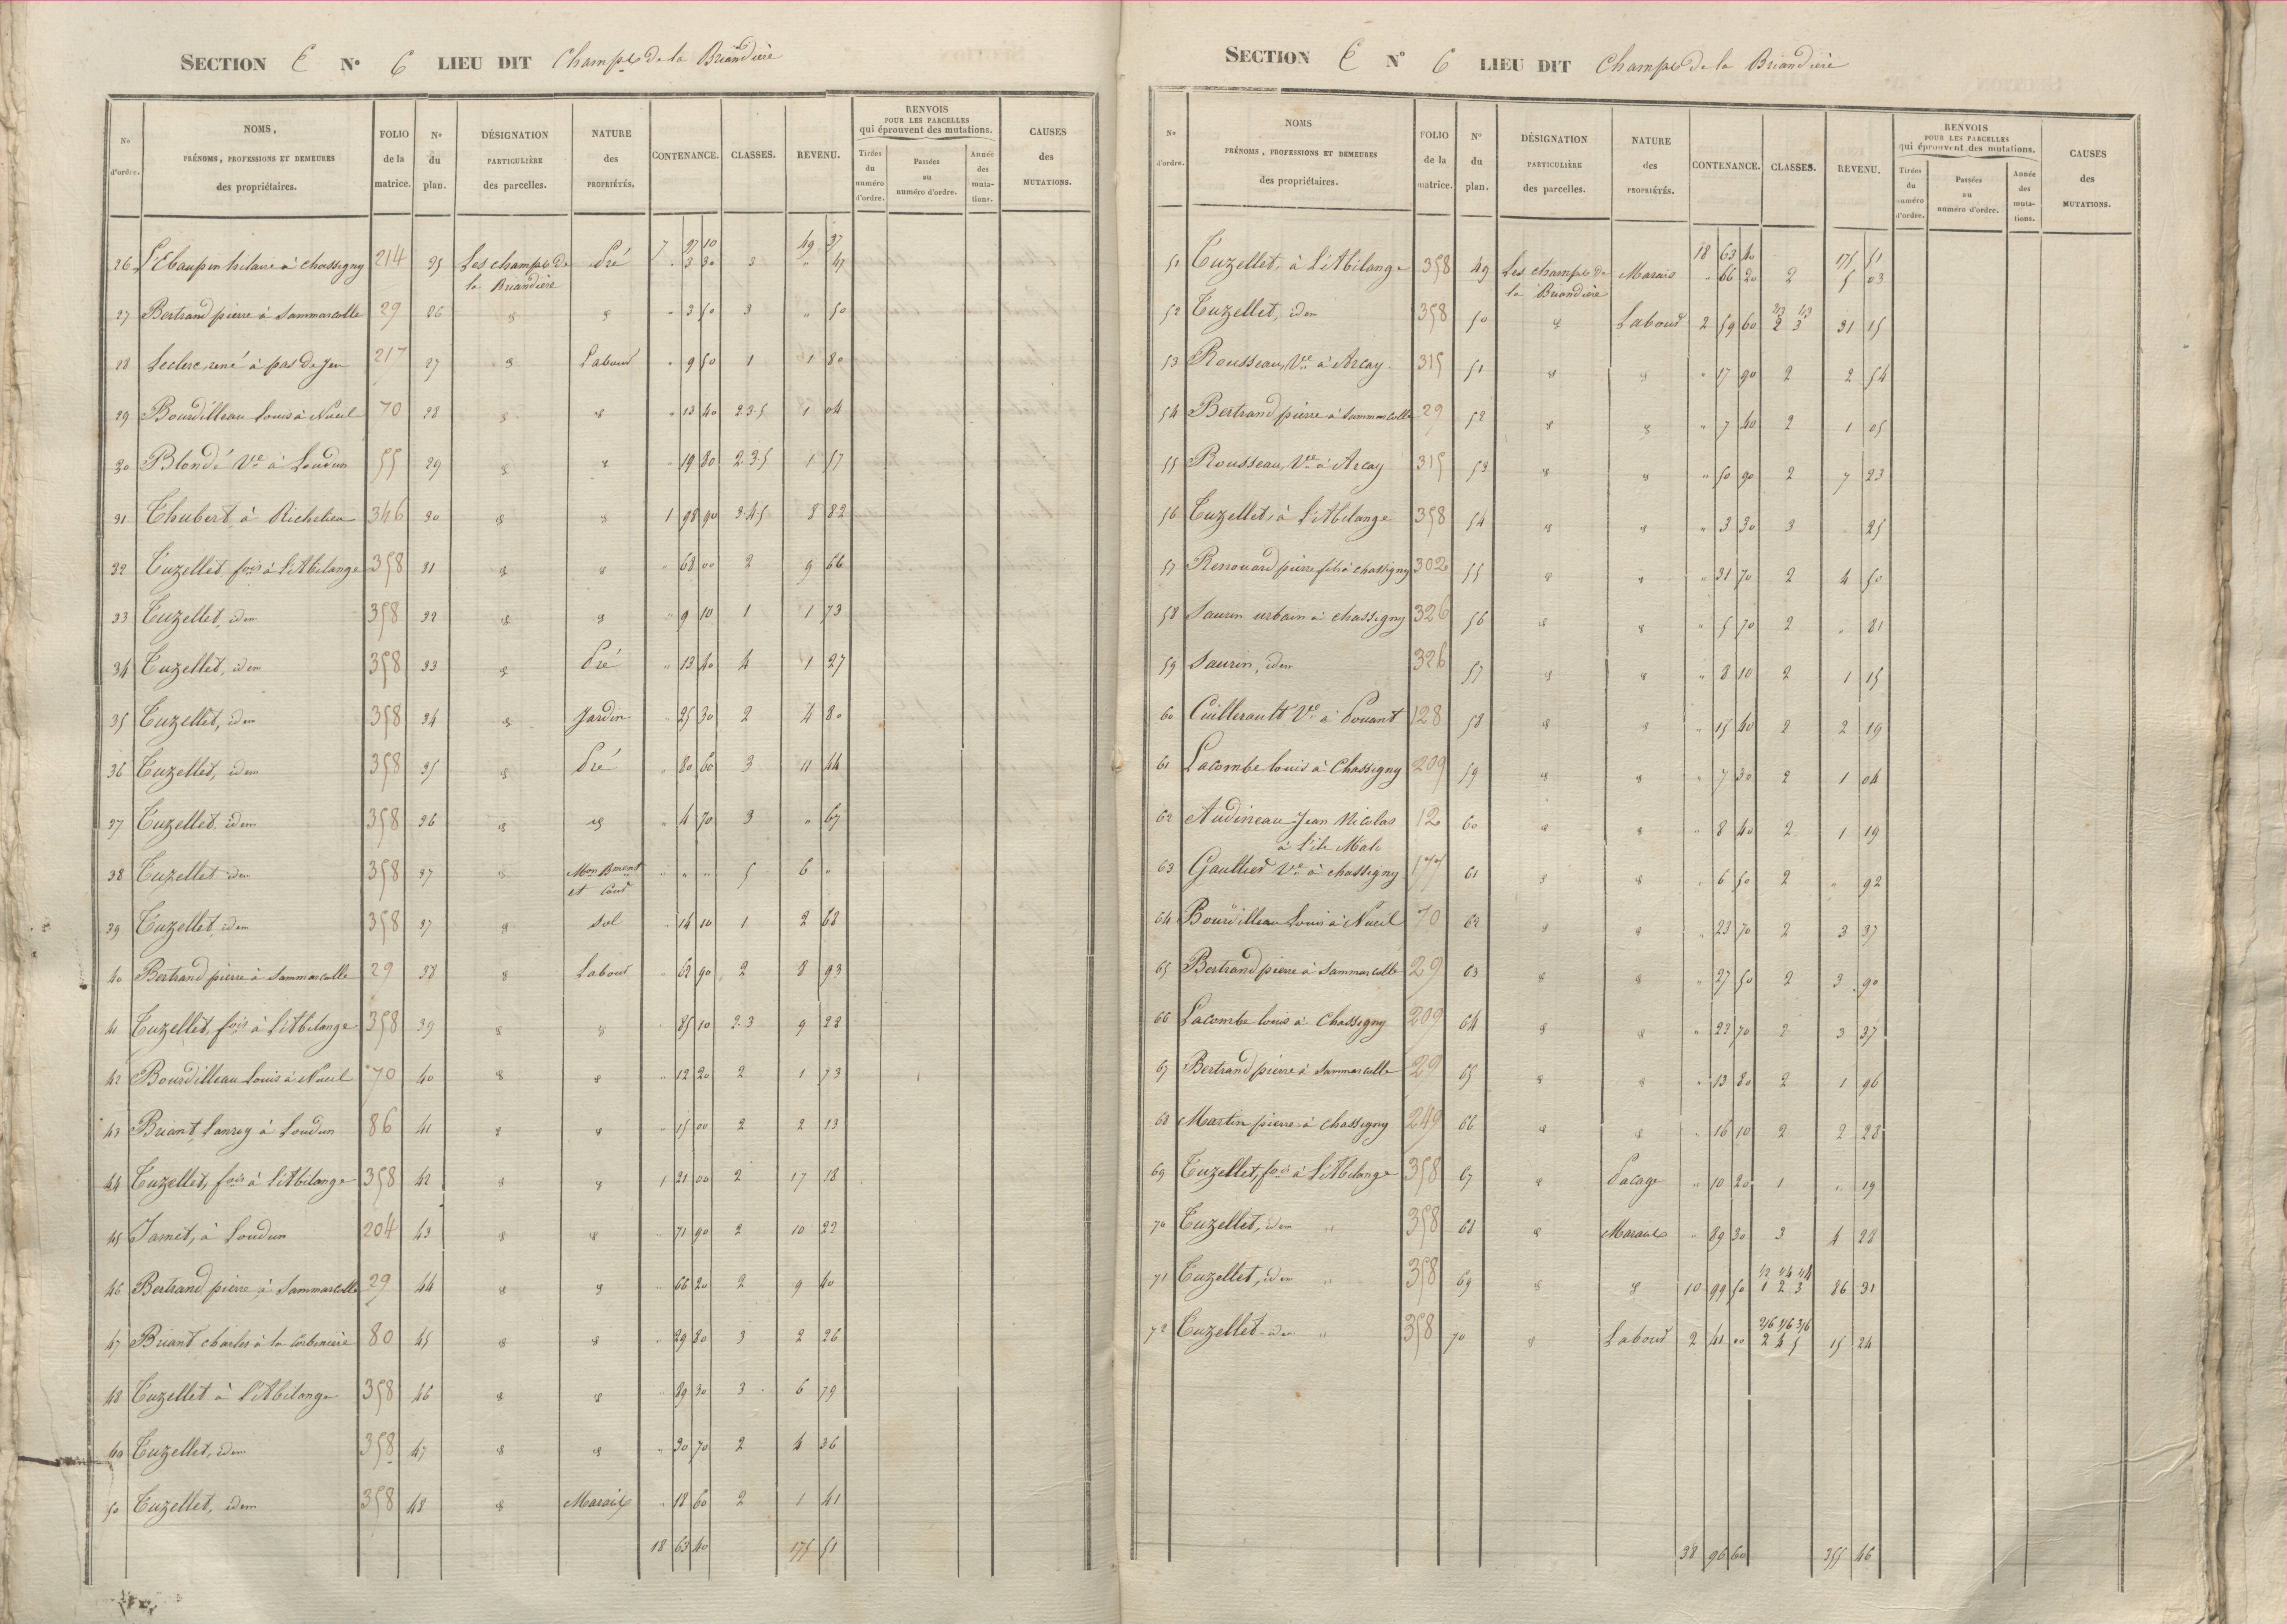 SECTION E N° 6 LIEU DIT Champs de la Briandière
N° d'ordre. NOMS, PRÉNOMS, PROFESSIONS ET DEMEURES des propriétaires. FOLIO de la matrice. N° du plan. DÉSIGNATION PARTICULIÈRE des parcelles. NATURE des PROPRIÉTÉS. CONTENANCE. CLASSES. REVENU. RENVOIS POUR LES PARCELLES qui éprouvent des mutations. Tirées du numéro d'ordre. Passées au numéro d'ordre. Année des mutations. CAUSES des MUTATIONS.
7 27 10 49 37
26 L'Ebaupin hilaire à chassigny 214 25 Les champs de Pré " 3 30 3 " 47
la Briandière
27 Bertrand pierre à Sammarcolle 29 26 " 3 50 3 " 50
28 Leclerc rené à pas de jeu 217 27 Labour " 9 50 1 1 80
29 Bourdilleau Louis à Nueil 70 28 " 13 40 2.3.5 1 04
30 Blondé Ve à Loudun 55 29 " 19 80 2.3.5 1 57
31 Thubert à Richelieu 346 30 1 98 90 3.4.5 8 82
32 Tuzellet fois à l'Abilange 358 31 " 68 00 2 9 66
33 Tuzellet, idem 358 32 " 9 10 1 1 73
34 Tuzellet, idem 358 33 Pré " 13 40 4 1 27
35 Tuzellet, idem 358 34 Jardin " 25 30 2 4 80
36 Tuzellet, idem 358 35 Pré " 80 60 3 11 44
37 Tuzellet, idem 358 36 " 4 70 3 " 67
38 Tuzellet idem 358 37 Mon Bment " " " 5 6 "
et Cour
39 Tuzellet, idem 358 37 Sol " 14 10 1 2 68
40 Bertrand pierre à Sammarcolle 29 38 Labour " 62 90 2 8 93
41 Tuzellet, fois à l'Abilange 358 39 " 85 10 2.3 9 22
42 Bourdilleau Louis à Nueil 70 40 " 12 20 2 1 73
43 Briant Lanrey à Loudun 86 41 " 15 00 2 2 13
44 Tuzellet, fois à l'Abilange 358 42 1 21 00 2 17 18
45 Jamet, à Loudun 204 43 " 71 90 2 10 22
46 Bertrand pierre à Sammarcolle 29 44 " 66 20 2 9 40
47 Briant charles à la Corbinière 80 45 " 29 80 3 2 26
48 Tuzellet à l'Abilange 358 46 " 89 30 3 6 79
49 Tuzellet, idem 358 47 " 30 70 2 4 36
50 Tuzellet, idem 358 48 Marais " 18 60 2 1 41
18 63 40 175 51
SECTION E N° 6 LIEU DIT Champs de la Briandière
N° d'ordre. NOMS PRÉNOMS, PROFESSIONS ET DEMEURES des propriétaires. FOLIO de la matrice. N° du plan. DÉSIGNATION PARTICULIÈRE des parcelles. NATURE des PROPRIÉTÉS. CONTENANCE. CLASSES. REVENU. RENVOIS POUR LES PARCELLES qui éprouvent des mutations. Tirées du numéro d'ordre. Passées au numéro d'ordre. Année des mutations. CAUSES des MUTATIONS.
18 63 40 175 51
51 Tuzellet, à l'Abilange 358 49 Les champs de Marais " 66 20 2 5 03
la Briandière
52 Tuzellet, idem 358 50 Labour 2 59 60 2 3 31 15
53 Rousseau, Ve à Arcay 315 51 " 17 90 2 2 54
54 Bertrand pierre à Sammarcolle 29 52 " 7 40 2 1 05
55 Rousseau, Ve à Arcay 315 53 " 50 90 2 7 23
56 Tuzellet, à l'Abilange 358 54 " 3 30 3 25
57 Renouard pierre fils à chassigny 302 55 " 31 70 2 4 50
58 Saurin urbain à chassigny 326 56 " 5 70 2 " 81
59 Saurin, idem 326 57 " 8 10 2 1 15
60 Cuillerault Ve à Pouant 128 58 " 15 40 2 2 19
61 Lacombe louis à Chassigny 209 59 " 7 30 2 1 04
62 Audineau Jean Nicolas 12 60 " 8 40 2 1 19
à l'ile
63 Gaultier Ve à chassigny 177 61 " 6 50 2 " 92
64 Bourdilleau Louis à Nueil 70 62 " 23 70 2 3 37
65 Bertrand pierre à Sammarcolle 29 63 " 27 50 2 3 90
66 Lacombe louis à Chassigny 209 64 " 23 70 2 3 37
67 Bertrand pierre à Sammarcolle 29 65 " 13 80 2 1 96
68 Martin pierre à chassigny 249 66 " 16 10 2 2 28
69 Tuzellet, fois à l'Abilange 358 67 Pacage " 10 20 1 " 19
70 Tuzellet, idem " 358 68 Marais " 89 30 3 4 28
71 Tuzellet, idem " 358 69 10 99 50 1/2 1/4 1/4 1 2 3 86 31
72 Tuzellet idem " 358 70 Labour 2 41 00 2/6 1/6 3/6 2 4 5 15 24
38 96 60 355 46